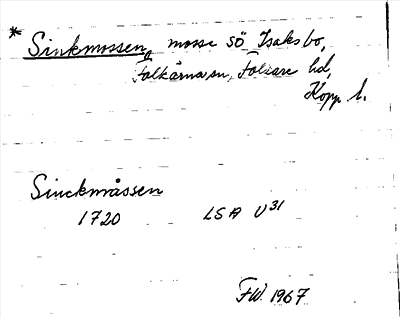 * Sinkmossen, mosse sö Isaksbo,
Folkärna sn, Folkare hd,
Kopp. l.
Sinckmåssen
1720 LSA U31
FW. 1967